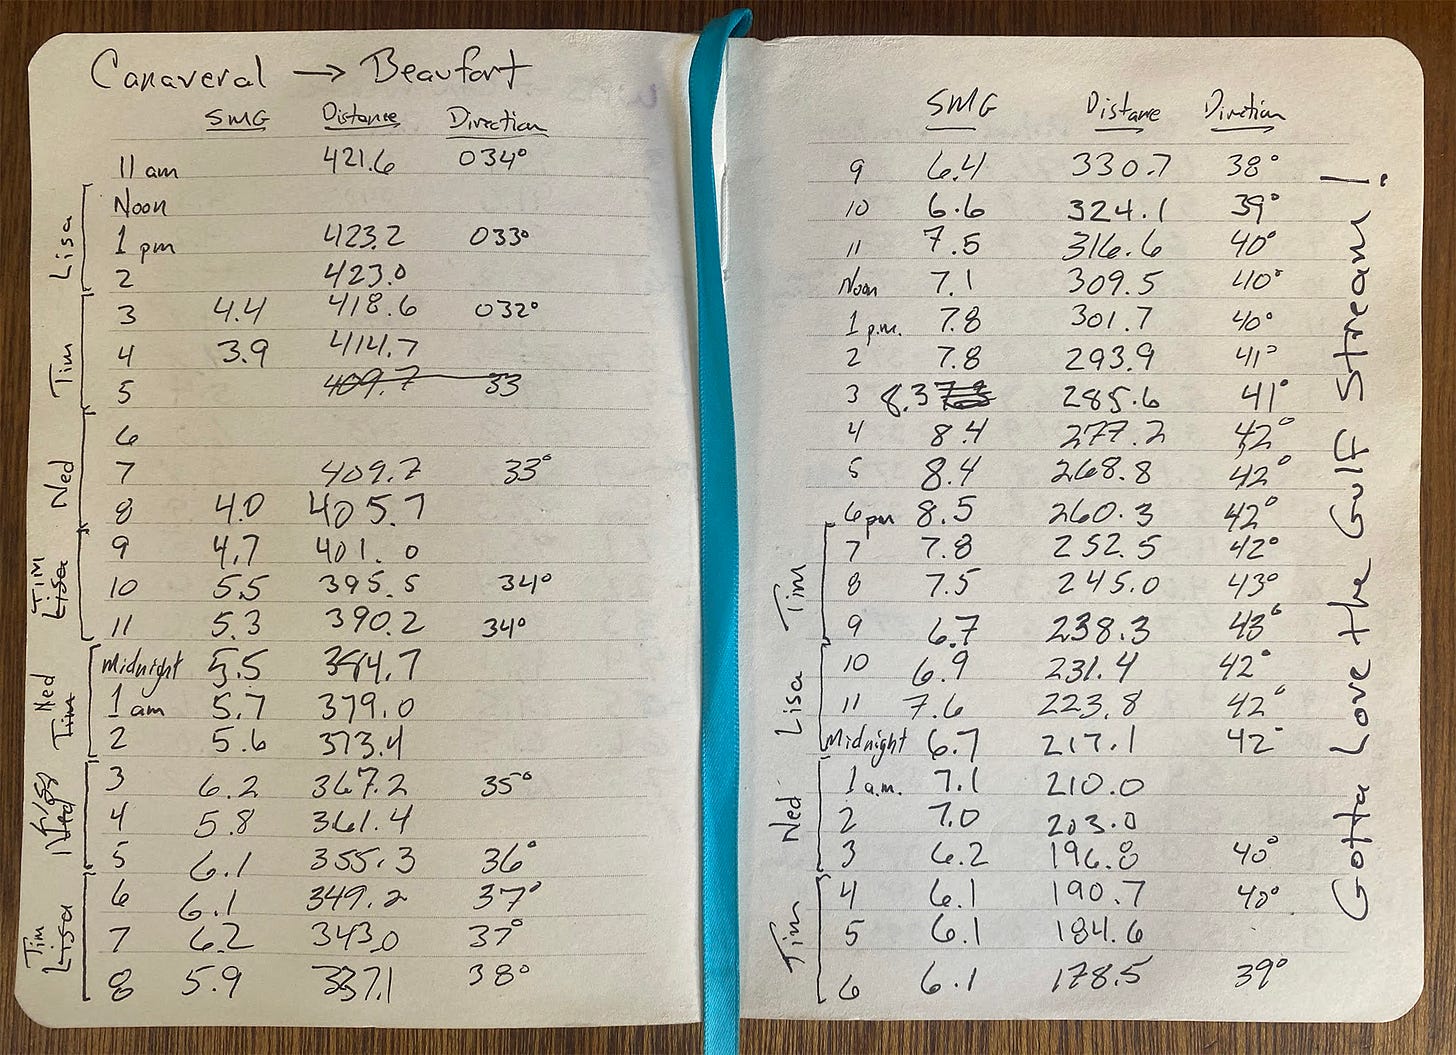 Canaveral → Beaufort
SMG Distance Direction
11 am 421.6 034°
Noon
1 pm 423.2 033°
2 423.0
Lisa
3 4.4 418.6 032°
4 3.9 414.7
5 409.7 33
Tim
6
7 409.7 33°
8 4.0 405.7
Ned
9 4.7 401.0
10 5.5 395.5 34°
11 5.3 390.2 34°
Tim
Lisa
Midnight 5.5 384.7
1 am 5.7 379.0
2 5.6 373.4
Ned
Tim
3 6.2 367.2 35°
4 5.8 361.4
5 6.1 355.3 36°
Lisa
Ned
6 6.1 349.2 37°
7 6.2 343.0 37°
8 5.9 337.1 38°
Tim
Lisa
SMG Distance Direction
9 6.4 330.7 38°
10 6.6 324.1 39°
11 7.5 316.6 40°
Noon 7.1 309.5 40°
1 p.m. 7.8 301.7 40°
2 7.8 293.9 41°
3 8.3 285.6 41°
4 8.4 277.2 42°
5 8.4 268.8 42°
6 pm 8.5 260.3 42°
7 7.8 252.5 42°
8 7.5 245.0 43°
9 6.7 238.3 43°
Tim
10 6.9 231.4 42°
11 7.6 223.8 42°
Midnight 6.7 217.1 42°
Lisa
1 a.m. 7.1 210.0
2 7.0 203.0
3 6.2 196.8 40°
Ned
4 6.1 190.7 40°
5 6.1 184.6
6 6.1 178.5 39°
Tim
Gotta Love the Gulf Stream!